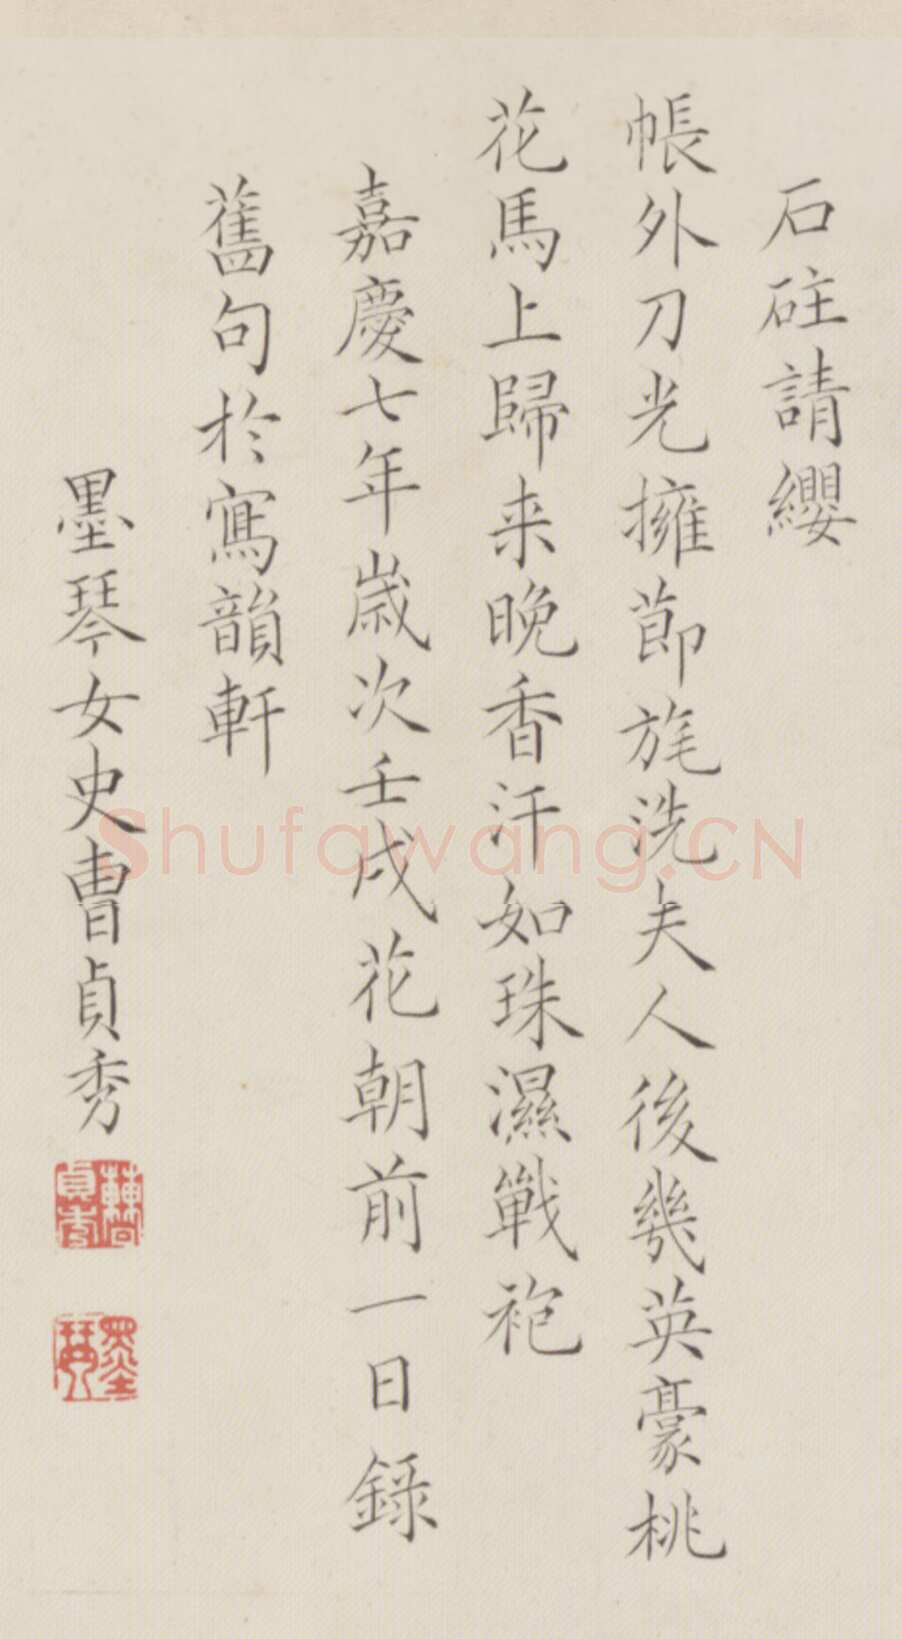 石砫請纓
帳外刀光擁節旄洗夫人後幾英豪桃
花馬上歸来晚香汗如珠濕戰袍
嘉慶七年歲次壬戌花朝前一日錄
舊句於寫韻軒
墨琴女史曹貞秀
曹貞秀
墨琴
Shufawang.CN